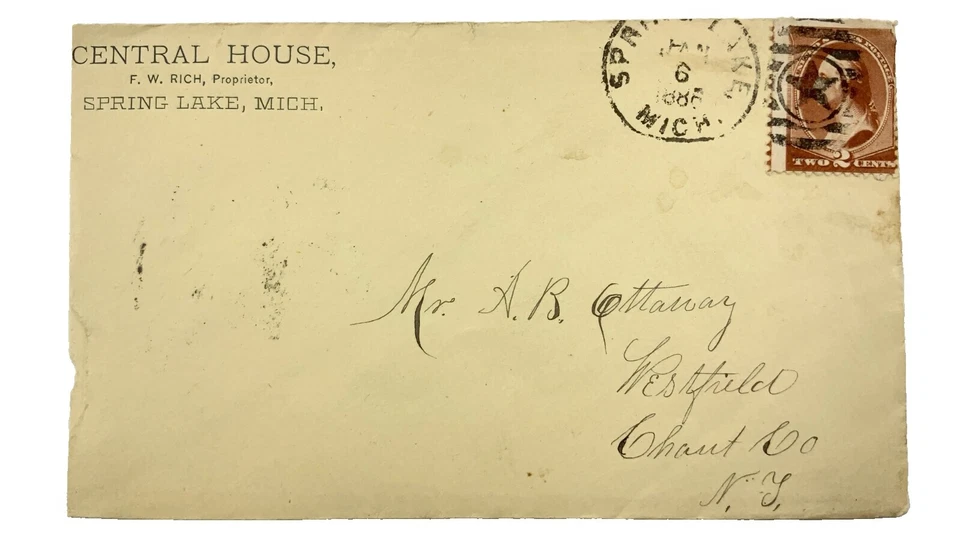 CENTRAL HOUSE,
F. W. RICH, Proprietor,
SPRING LAKE, MICH.
SPRING LAKE
JAN
6
MICH.
TWO 2 CENTS
Mr. A. B. Ottaway
Westfield
Chaut Co
N. Y.